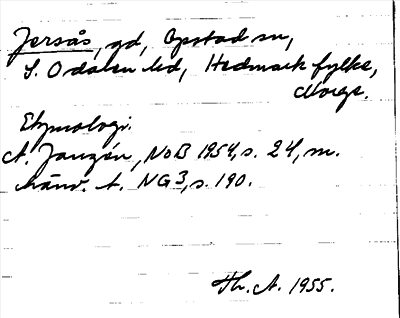 Jersås, gd, Opstad sn,
S. Odalen hd, Hedmark fylke,
Norge.
Etymologi.
A. Janzén, NoB 1954, s. 24, m.
hänv. t. NG 3, s. 190.
Th. A. 1955.